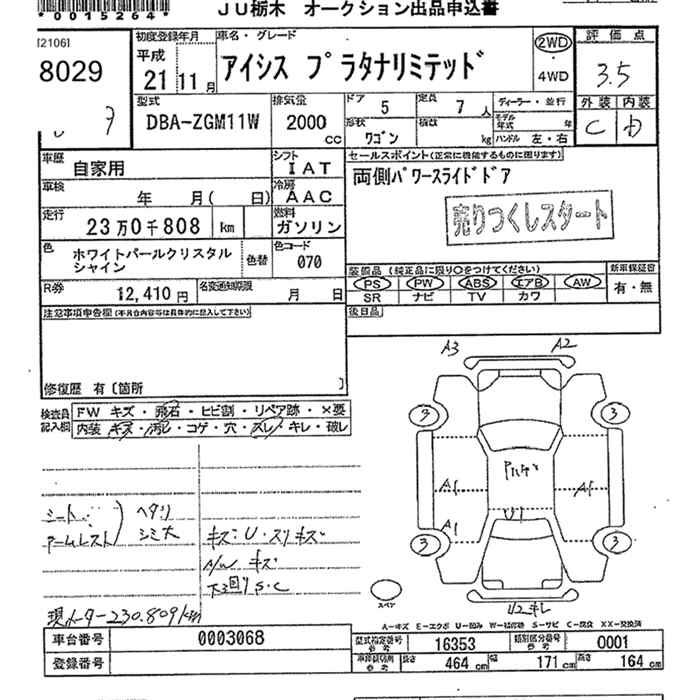 *0015264*
JU栃木 オークション出品申込書
21061
8029
初度登録年月
平成
21 11 月
車名・グレード
アイシス プラタナリミテッド
2WD
4WD
評価点
3.5
外装 内装
C D
型式
DBA-ZGM11W
排気量
2000 cc
ドア 5
定員 7 人
形状 ワゴン
積数 kg
ディーラー・並行
モデル年式 年
ハンドル 左・右
車歴 自家用
シフト IAT
車検 年 月( 日)
冷房 AAC
走行 23万0千808 km
燃料 ガソリン
色 ホワイトパールクリスタルシャイン
色替
色コード 070
R券 12,410 円
名変通知期限 月 日
セールスポイント(正常に機能するものに限ります)
両側パワースライドドア
売りつくしスタート
装備品 (純正品に限り○をつけてください)
PS PW ABS エアB AW
SR ナビ TV カワ
新車保証書
有・無
後日品
注意事項申告欄(不具合内容等は具体的に記入して下さい)
修復歴 有〔箇所 〕
検査員記入欄
FW キズ・飛石・ヒビ割・リペア跡・×要
内装 キズ・汚レ・コゲ・穴・スレ・キレ・破レ
シート
アームレスト
ヘタリ
シミ大
キズ・U・スリキズ
A/W キズ
下回りS.C
現メーター230.809km
A3 A2
3 3
A1 A1
U1
A1
3 3
U2キレ
スペア
A-キズ E-エクボ U-凹み W-補修跡 S-サビ C-腐食 XX-交換済
車台番号 0003068
登録番号
型式指定番号 参考 16353
類別区分番号 参考 0001
車両級別用 参考
長さ 464 cm
幅 171 cm
高さ 164 cm